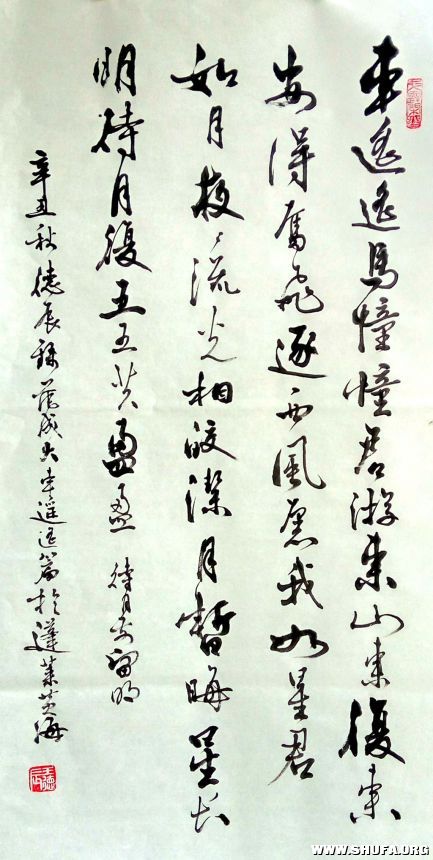 車遙遙馬憧憧君游東山東復東
安得奮飛逐西風愿我如星君
如月夜々流光相皎潔月暫晦星长
明待月復三五共盈盈 待月前留明
辛丑秋德辰録范成大車遥遥篇於蓬萊黄海
WWW.SHUFA.ORG